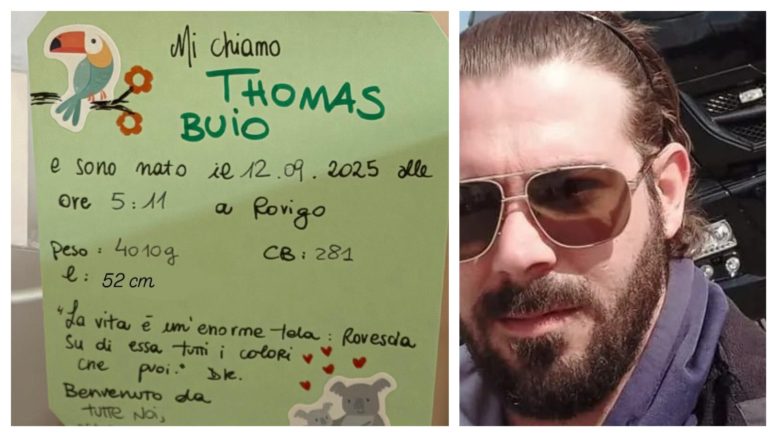 Mi chiamo
THOMAS
BUIO
e sono nato il 12.09.2025 alle
ore 5:11 a Rovigo
peso: 4010g CB: 281
l: 52 cm
"La vita è un'enorme tela: Rovescia
Su di essa tutti i colori
che puoi." Dk.
Benvenuto da
TUTTE NOI,